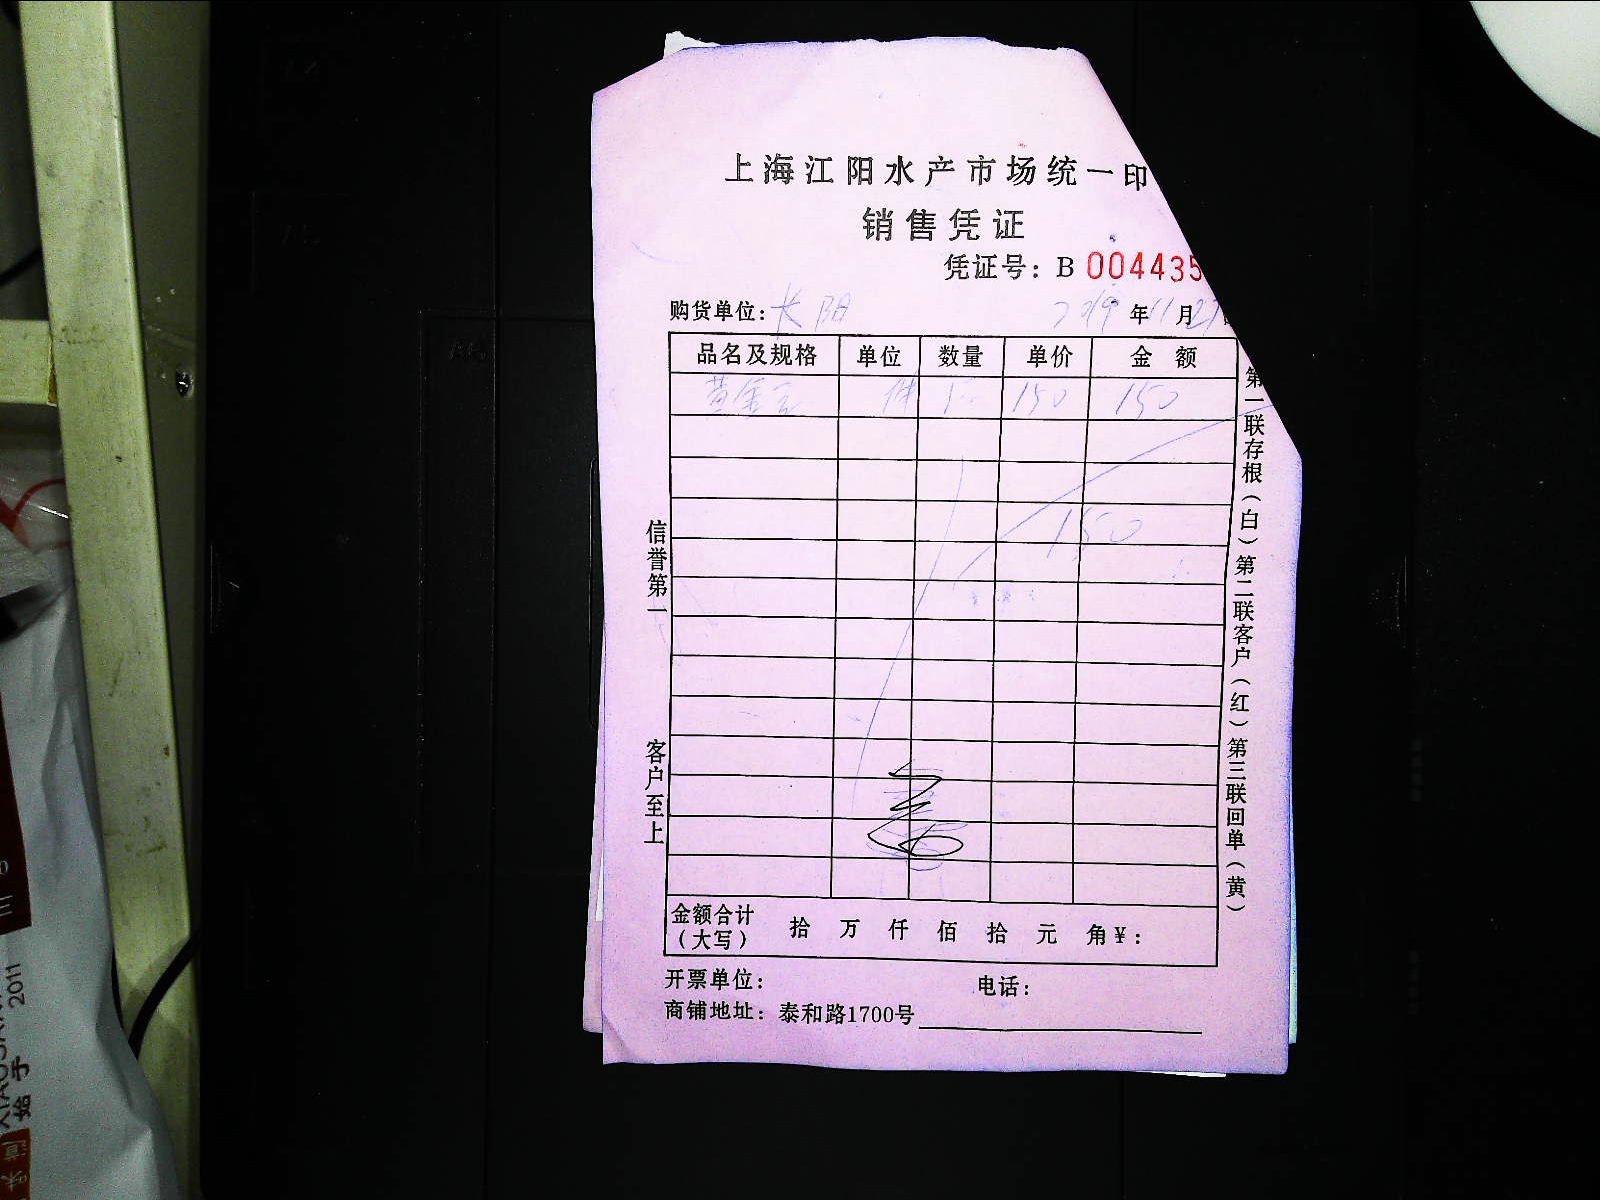 上海江阳水产市场统一印
销售凭证
凭证号：B 004435
购货单位：长阳 2019年11月27日
品名及规格 单位 数量 单价 金额
件 150 150
150
信誉第一
客户至上
第一联存根（白）第二联客户（红）第三联回单（黄）
金额合计（大写） 拾 万 仟 佰 拾 元 角 ¥：
开票单位： 电话：
商铺地址：泰和路1700号
始于 2011
味道